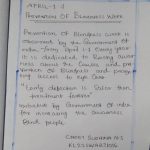 APRIL-1-7
PREVENTION OF BLINDNESS WEEK
Prevention of Blindness week is
observed by the Government of
India from April 1-7 every year
it is dedicated to Raising aware
ness about the causes and pre
vention of Blindness and pro
access to eye care
"Early detection is better than
treatment"
by Government of India
for increasing the awareness
Blind people
CADET